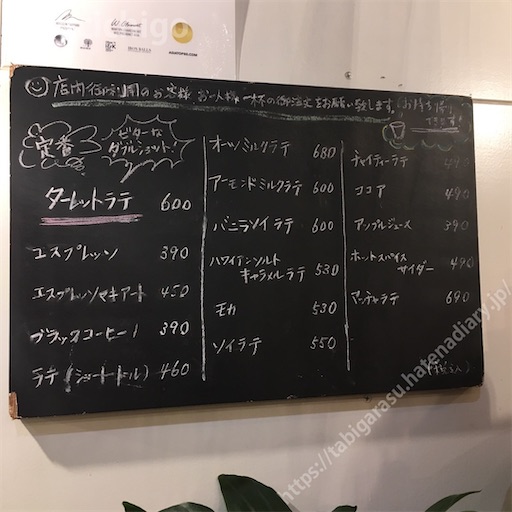 店内御利用のお客様 お一人様一杯の御注文をお願い致します。(お持ち帰り
できます!)
定番
ビターな
ダブルショット!
ターレットラテ 600
エスプレッソ 390
エスプレッソマキアート 450
ブラックコーヒー 390
ラテ(ショート・トール) 460
オーツミルクラテ 680
アーモンドミルクラテ 600
バニラソイラテ 600
ハワイアンソルト
キャラメルラテ 530
モカ 530
ソイラテ 550
チャイティーラテ 490
ココア 490
アップルジュース 390
ホットスパイス
サイダー 490
マッチャラテ 690
(税込)
https://tabigarasu.hatenadiary.jp/